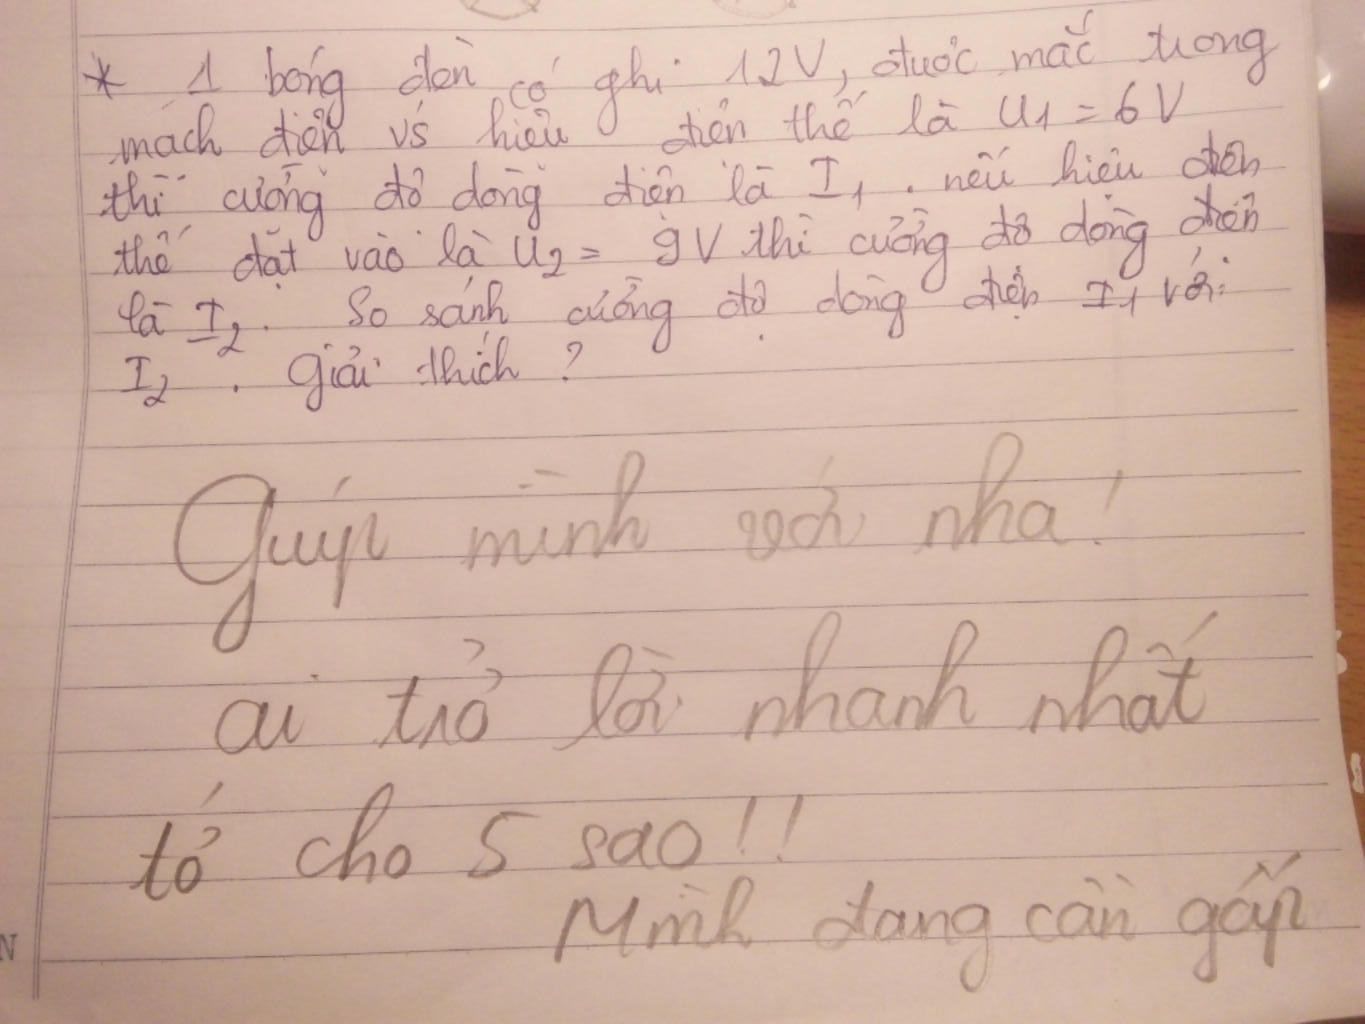 * 1 bóng đèn có ghi 12V, được mắc trong
mạch điện vs hiệu điện thế là U1 = 6V
thì cường độ dòng điện là I1. nếu hiệu điện
thế đặt vào là U2 = 9V thì cường độ dòng điện
là I2. So sánh cường độ dòng điện I1 với
I2. Giải thích ?
Giúp mình với nha!
ai trả lời nhanh nhất
tớ cho 5 sao!!
Mình đang cần gấp
N